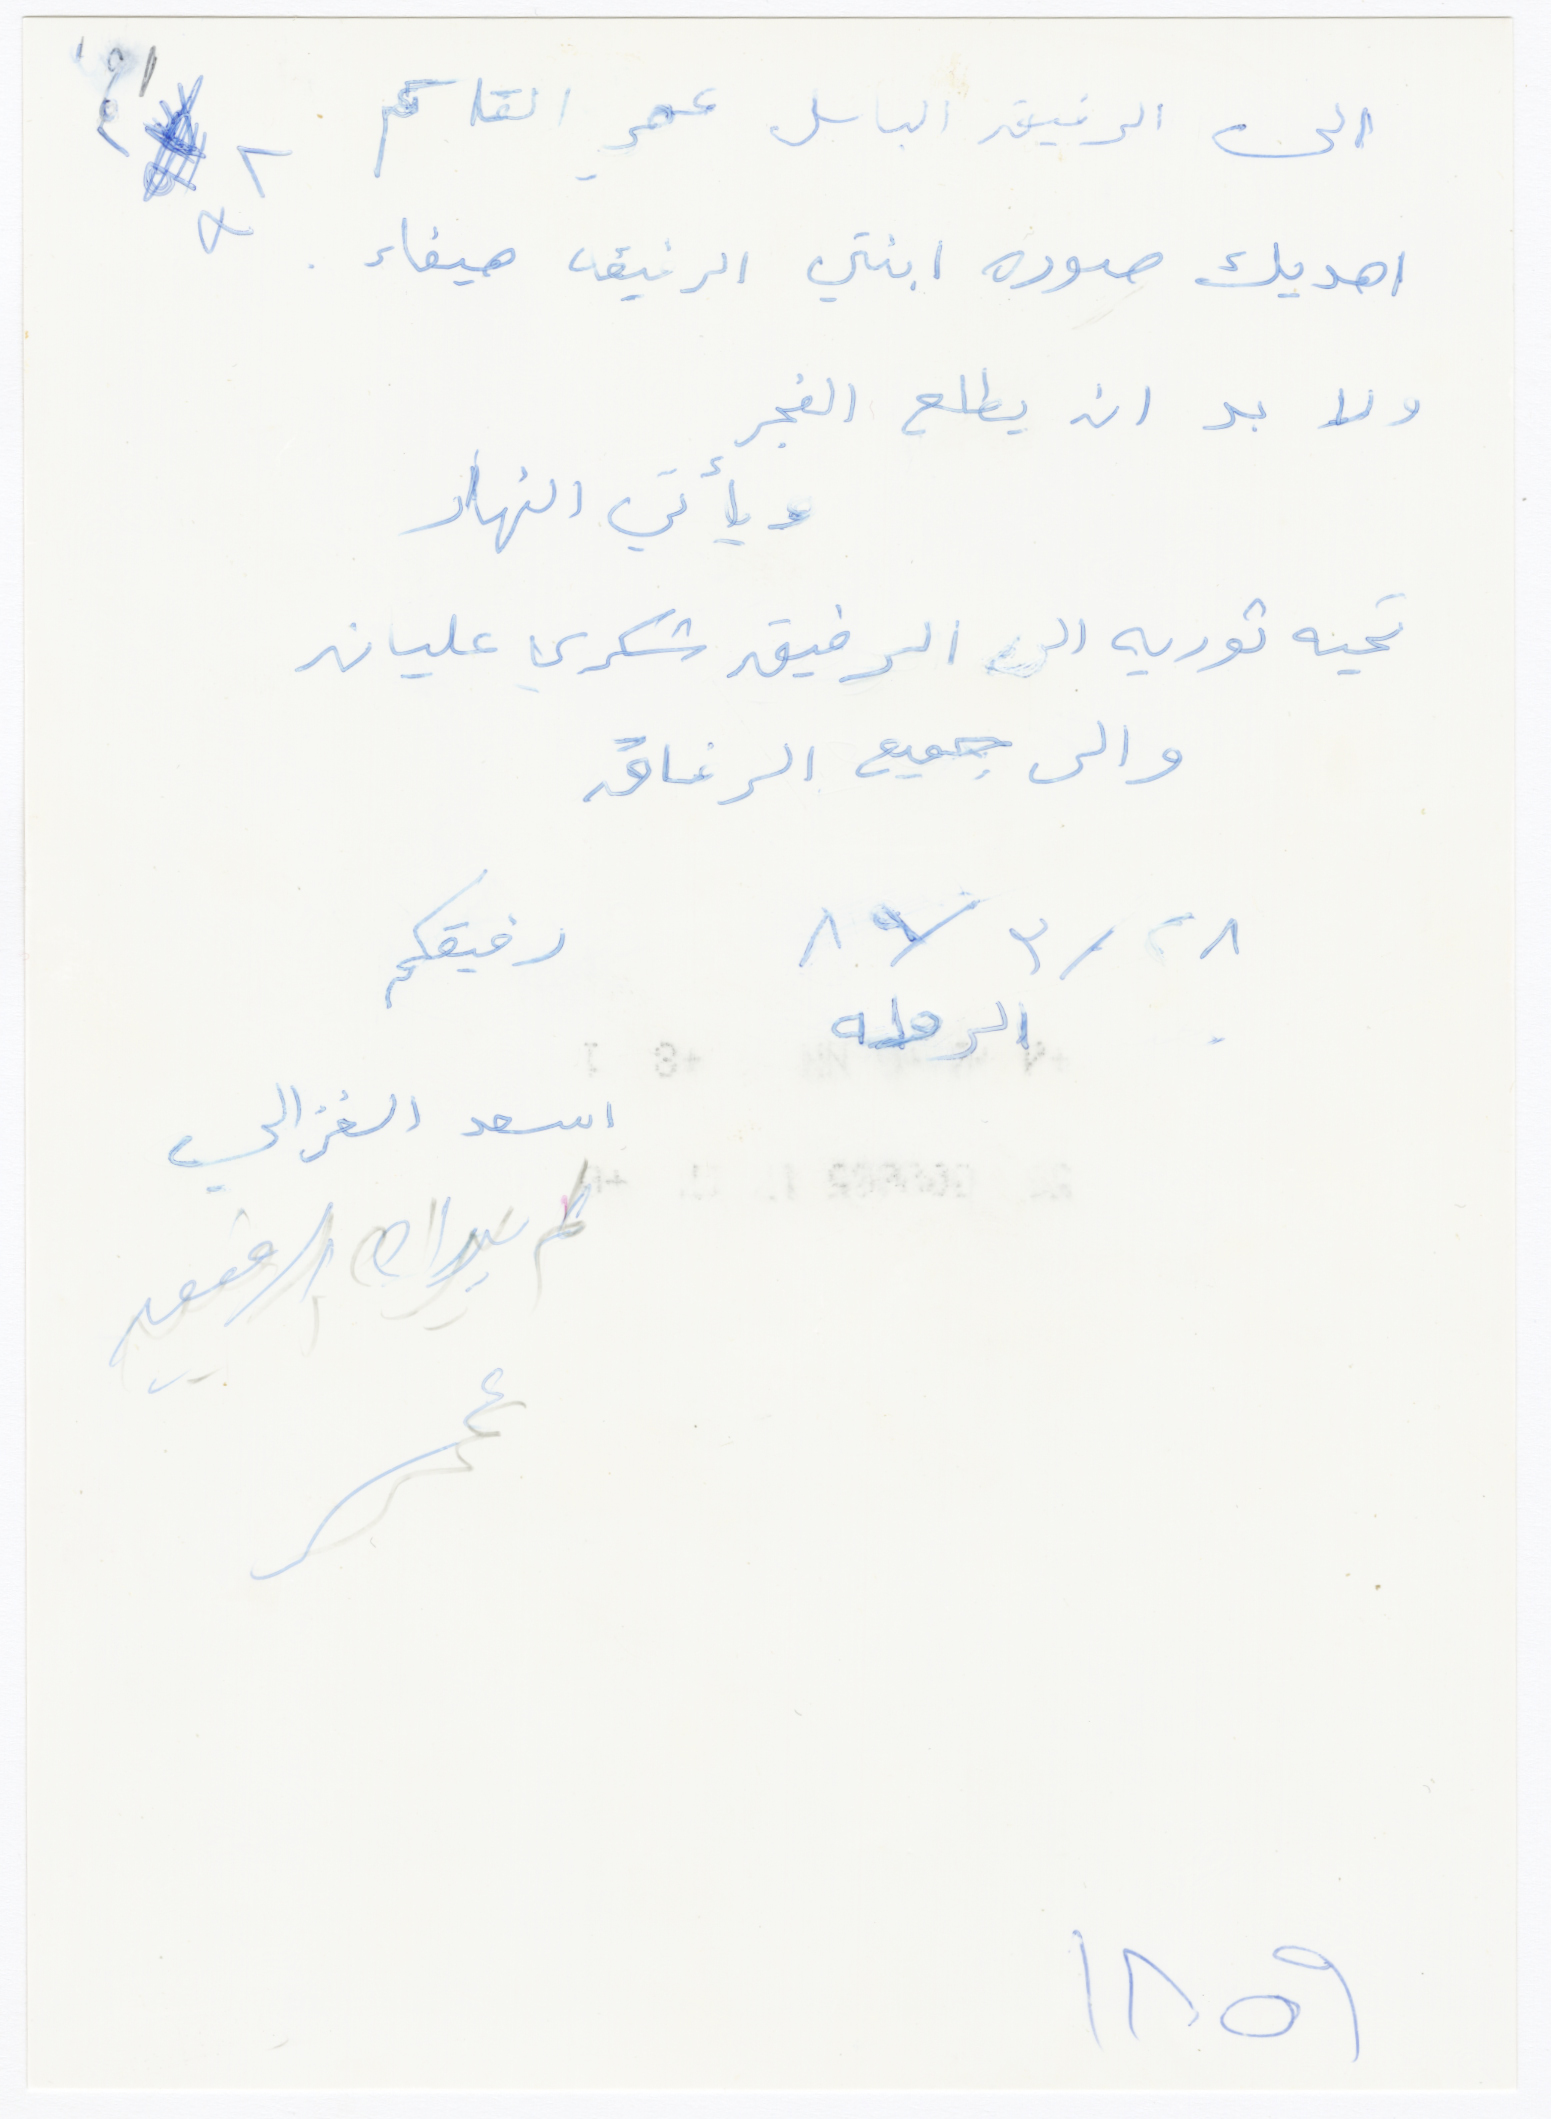 الى الرفيق الباسل عمر القاسم
اهديك صوره ابنتي الرفيقه هيفاء .
ولا بد ان يطلع الفجر
ويأتي النهار
تحيه ثوريه الى الرفيق شكري عليان
والى جميع الرفاق
٨٩/٣/٢٨ رفيقكم
الرمله
اسعد الغزالي
الرفيق
عمر
١٨٥٩